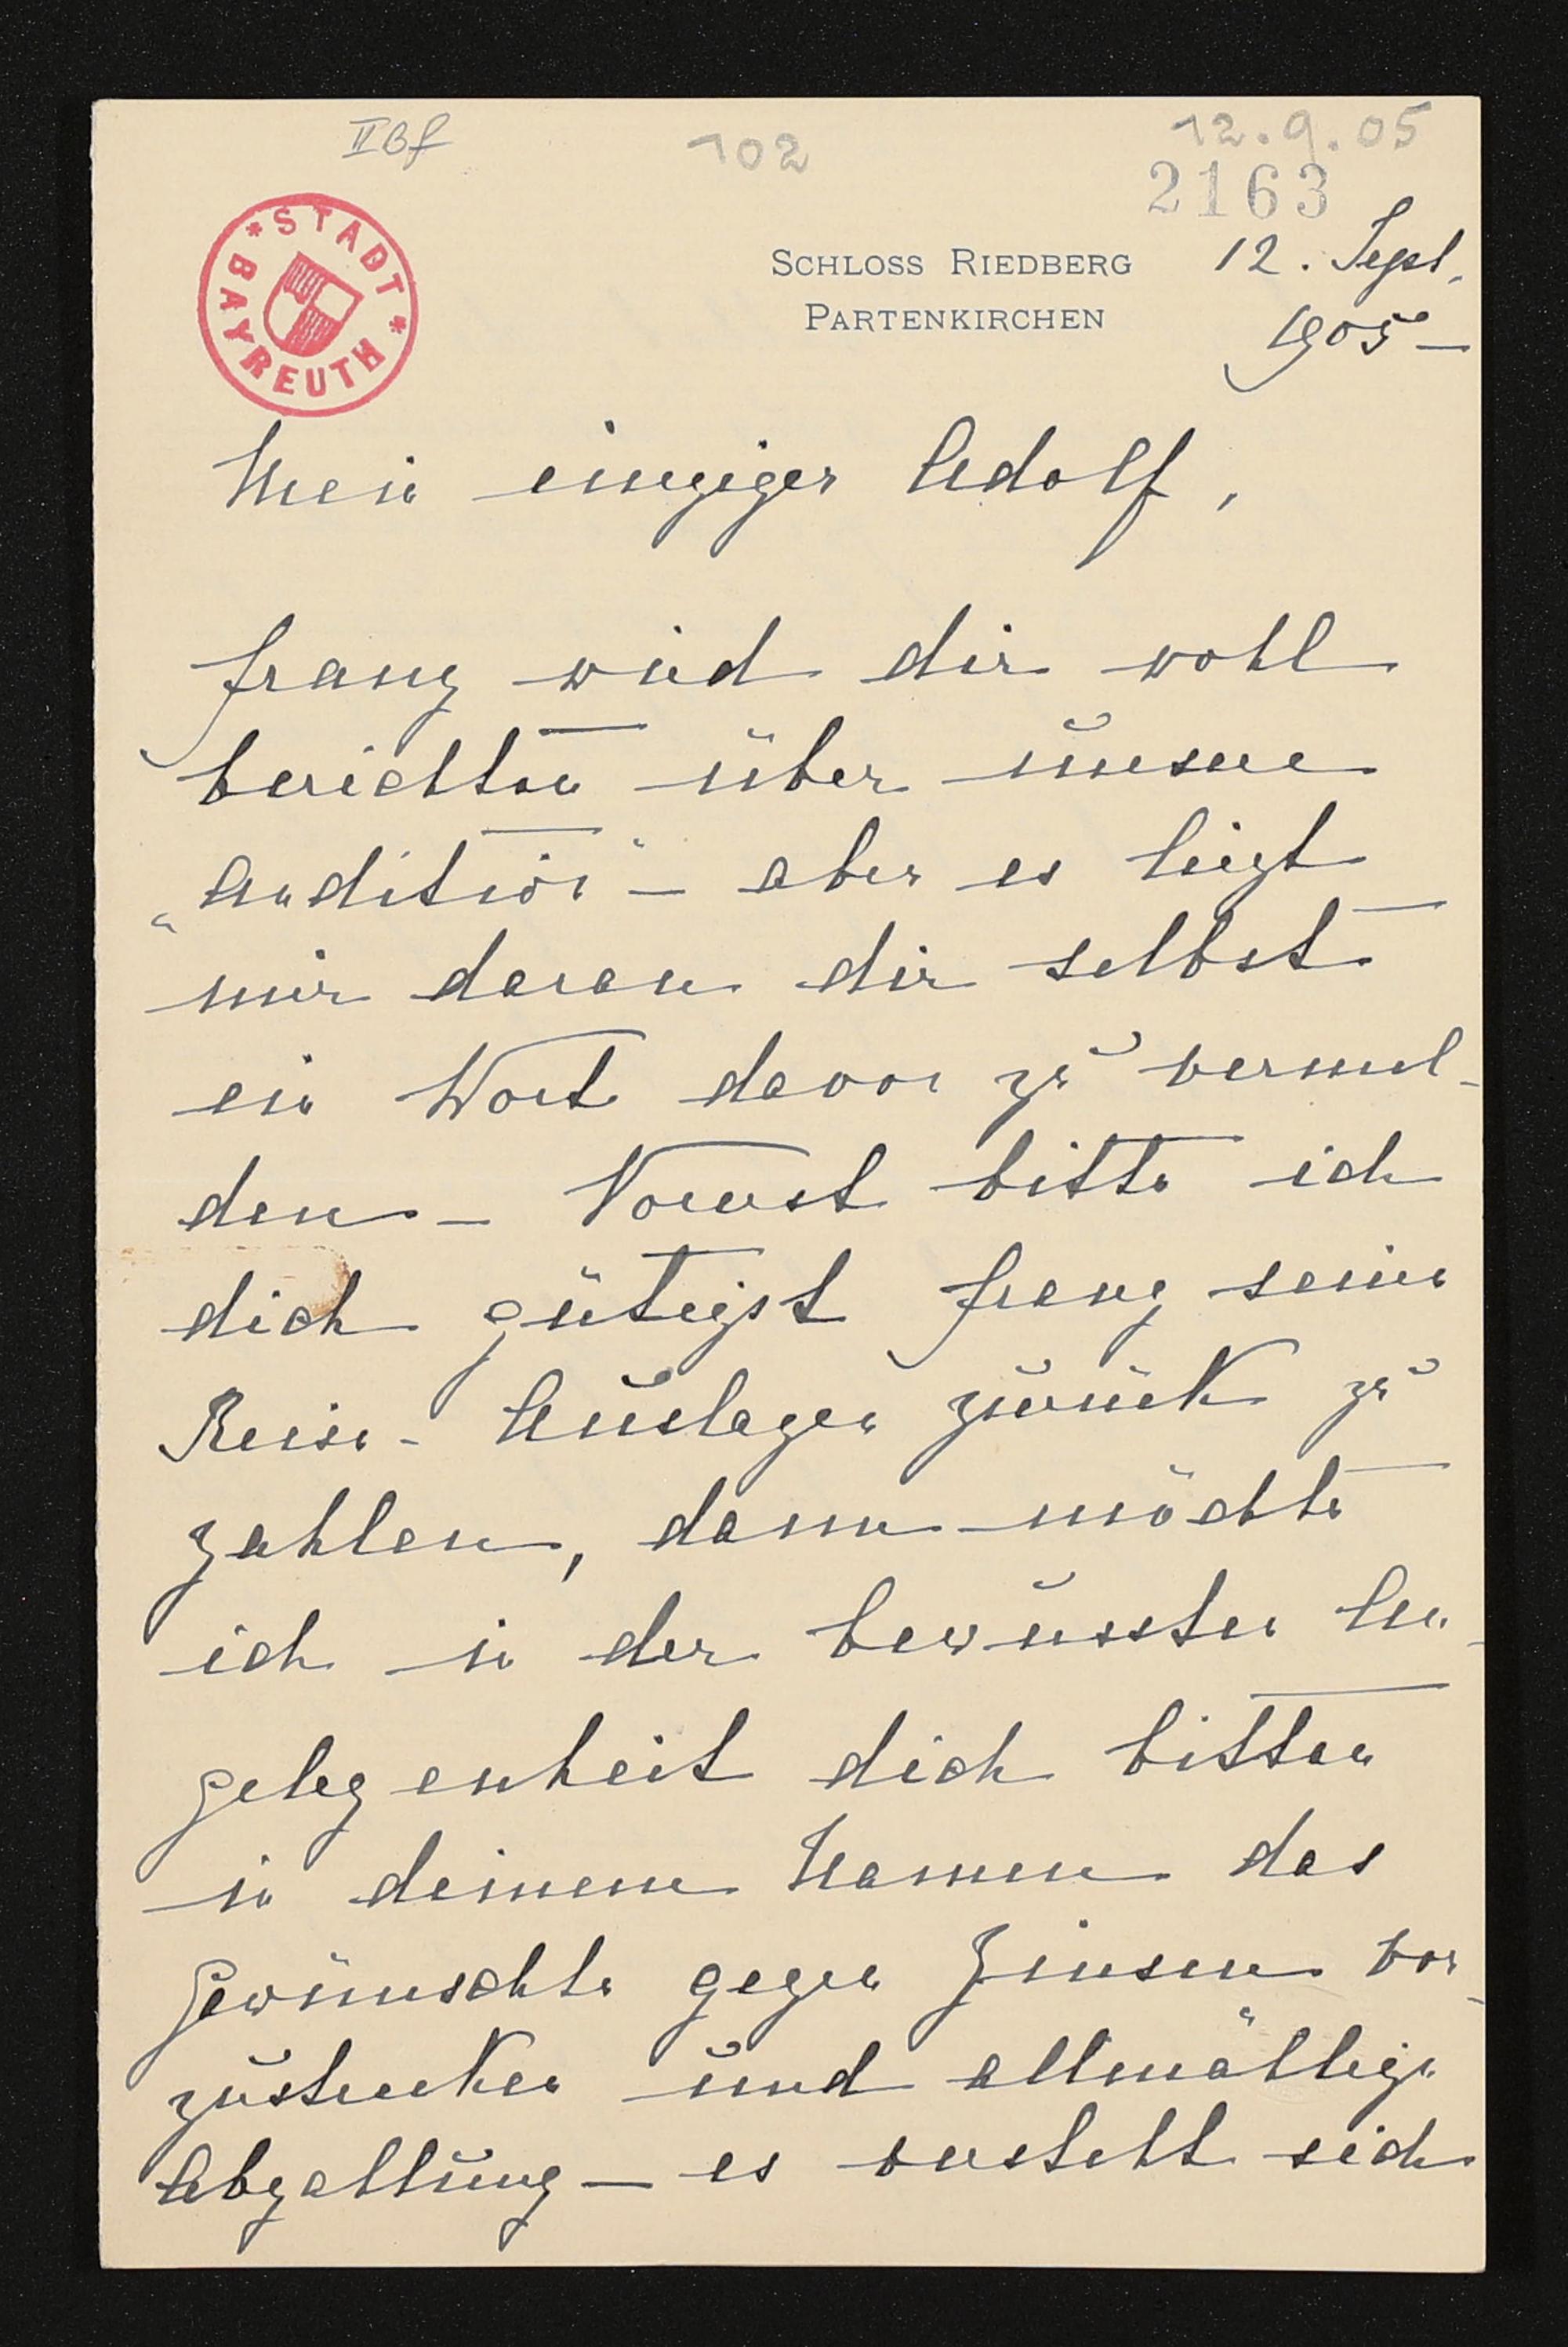 IIBf
102
12.9.05
2163
* STADT *
BAYREUTH
SCHLOSS RIEDBERG
PARTENKIRCHEN
12. Sept.
1905 –
Mein einziger Adolf,
Franz wird dir wohl
berichten über unsere
„Audition“ – aber es liegt
mir daran dir selbst
ein Wort davon zu vermel-
den – Vorerst bitte ich
dich gütigst Franz seine
Reise-Auslagen zurück zu
zahlen, dann möchte
ich in der bewussten An-
gelegenheit dich bitten
in deinem Namen das
Gewünschte gegen Zinsen vor-
zustrecken und allmählige
Abzahlung – es versteht sich